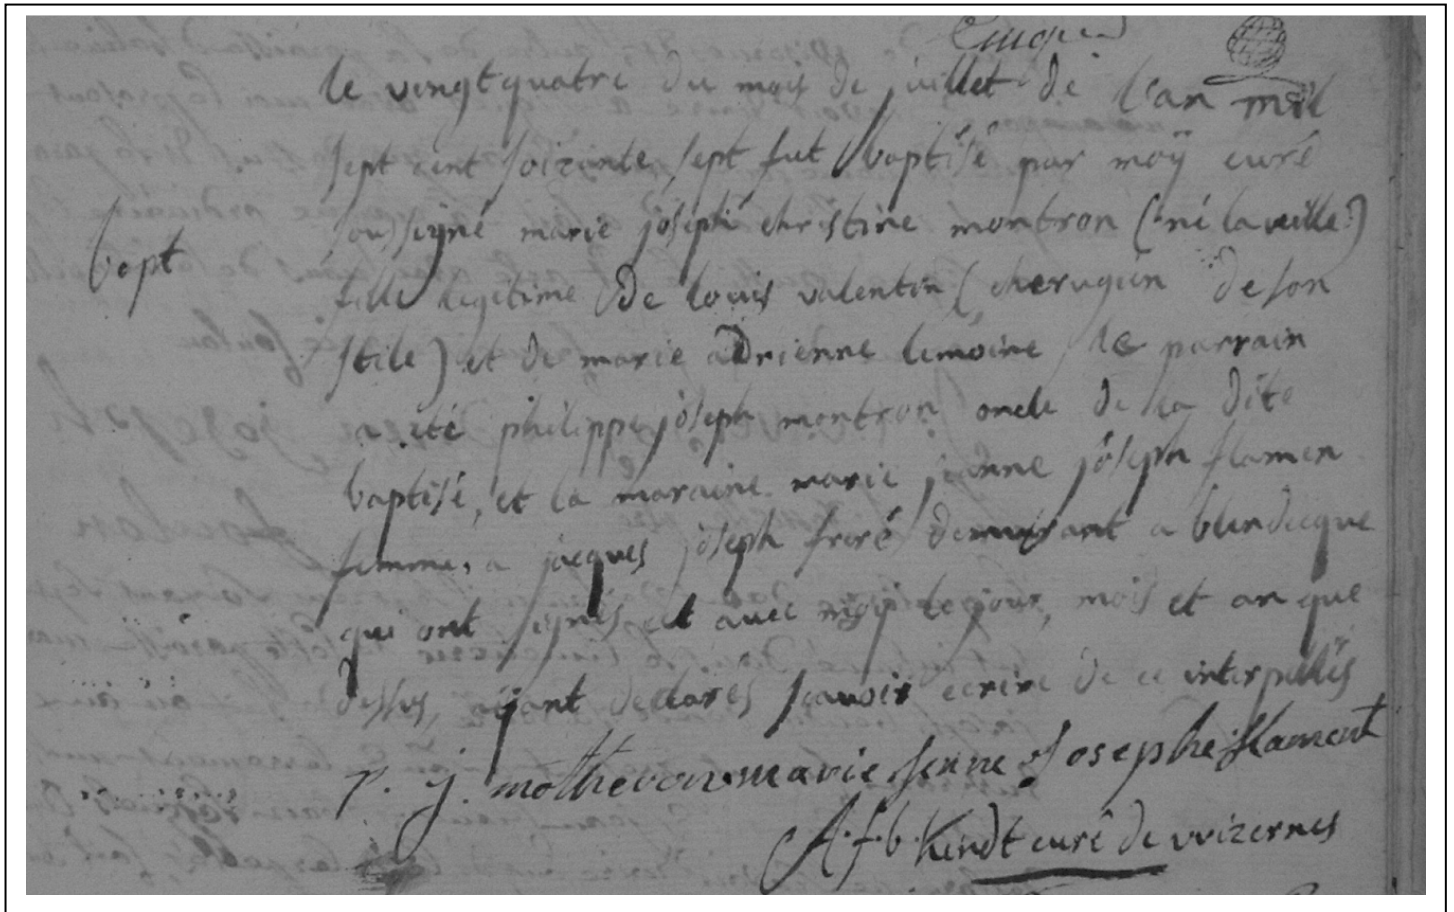 le vingtquatre du mois de juillet de l'an mil
sept cent soizante sept fut baptisé par moÿ curé
soussigné marie joseph christine montron (né la veille)
bapt
fille legitime de louis valentin ( cherugien de son
stile) et de marie adrienne lemoine le parrain
a été philippe joseph montron oncle de la dite
baptisé, et la maraine marie jeanne joseph flamen
femme, a jacques joseph freré demeurant a blendecque
qui ont signés et avec moy le jour, mois et an que
dessus, aÿant declares scavoir ecrire de ce interpellés
p. j. mothron marie jenne Josephe flament
A.f.b. Kindt curé de wizernes